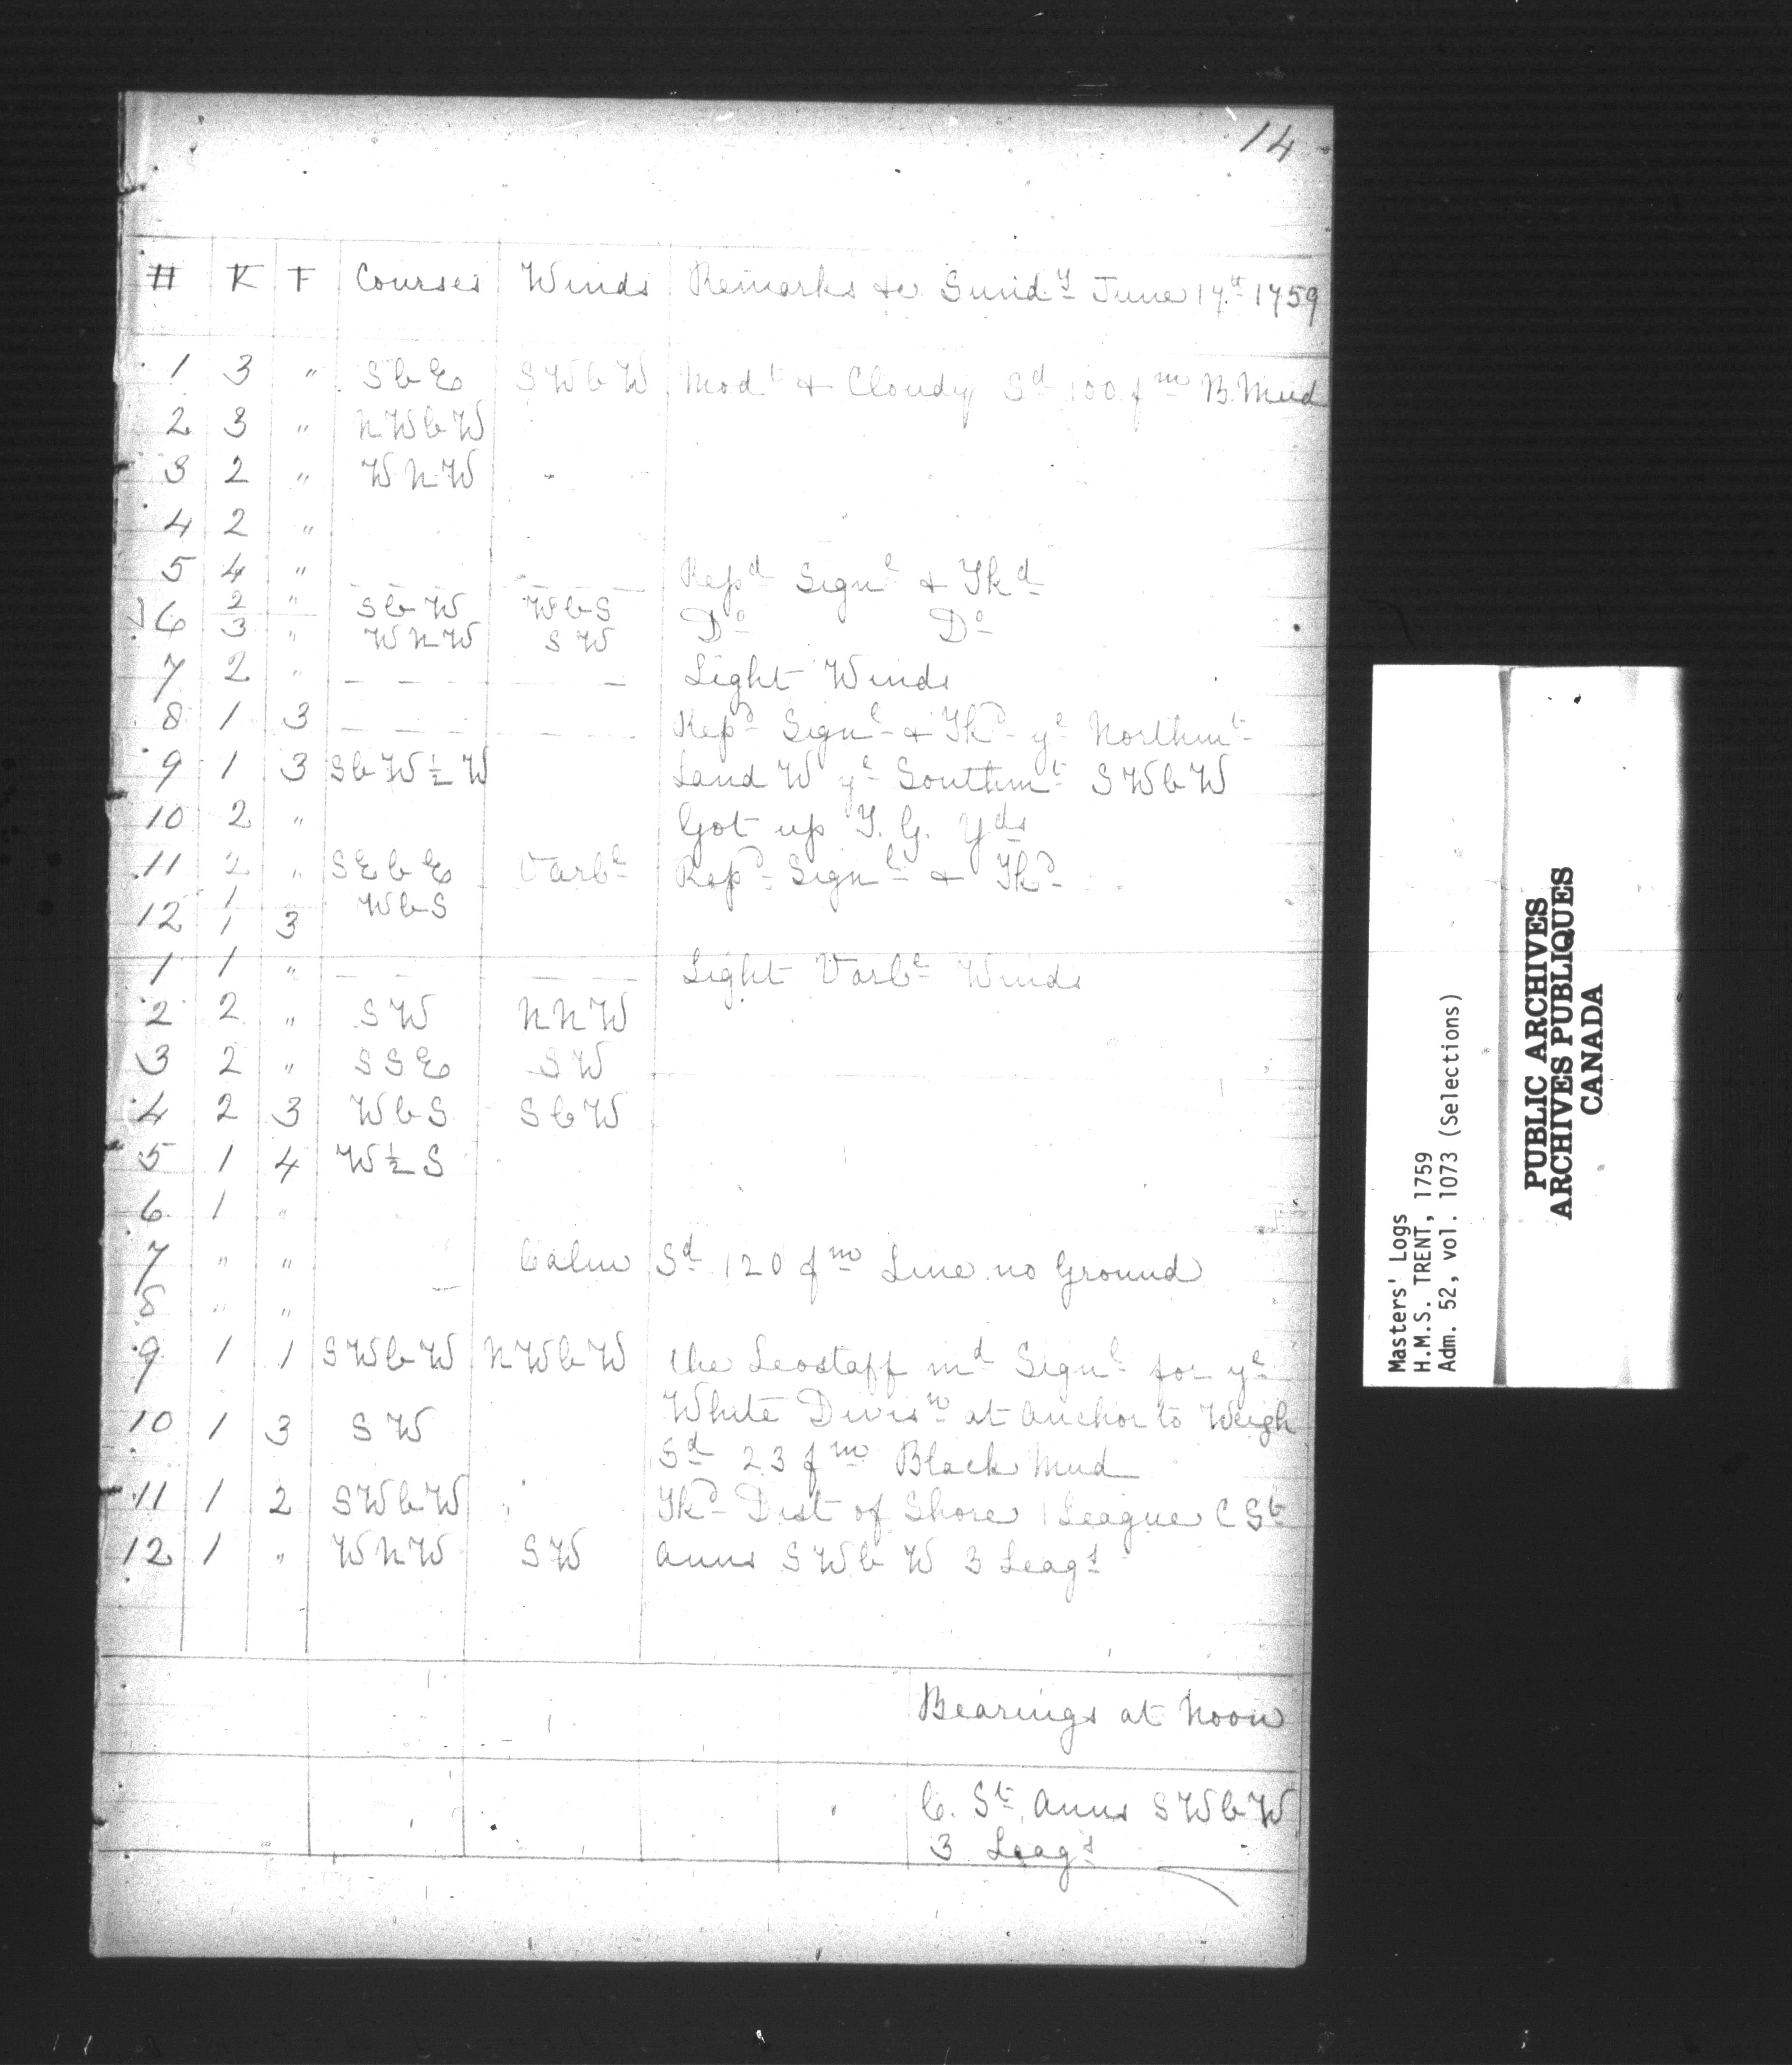 14
H K F Courses Winds Remarks &c Sund.y June 17th 1759
1 3 " SbE SWbW Modt & Cloudy Sd 100 fm B. Mud
2 3 " NWbW
3 2 " WNW
4 2 "
5 4 " Repd Signl & Tkd
6 2 " SbW WbS Do Do
3 " WNW SW
7 2 " — — — — Light Winds
8 1 3 — — — — — — — Repd Signl & Tkd ye Northmt
9 1 3 SbW½W Land W ye Southmt SWbW
10 2 " Got up T. G. Yds
11 2 " SEbE Varbe Repd Signl & Tkd
12 1 WbS
1 3
1 1 " — — — — Light Varbe Winds
2 2 " SW NNW
3 2 " SSE SW
4 2 3 WbS SbW
5 1 4 W½S
6 1 "
7 " " Calm Sd 120 fm Line no Ground
8 " "
9 1 1 SWbW NWbW the Leostaff md Signl for ye
White Divisn at anchor to Weigh
10 1 3 SW
Sd 23 fm Black Mud
11 1 2 SWbW Tkd Dist of Shore 1 League C St
12 1 " WNW SW Anns SWbW 3 Leags
Bearings at Noon
C. St Anns SWbW
3 Leags
Masters' Logs
H.M.S. TRENT, 1759
Adm. 52, vol. 1073 (Selections)
PUBLIC ARCHIVES
ARCHIVES PUBLIQUES
CANADA